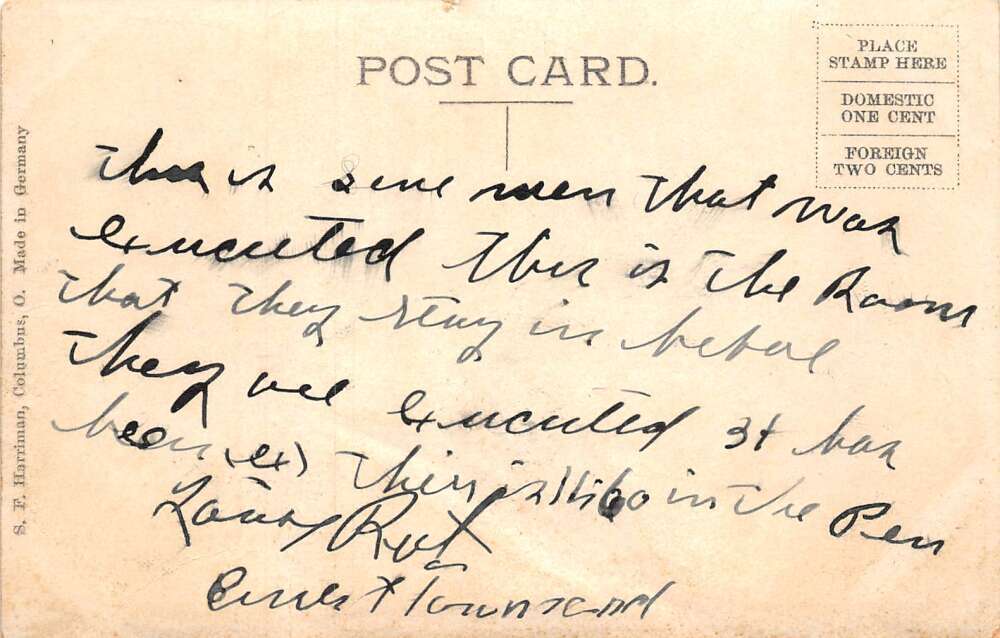 POST CARD.
PLACE
STAMP HERE
DOMESTIC
ONE CENT
FOREIGN
TWO CENTS
S. F. Harriman, Columbus, O. Made in Germany
is men that was
executed This is the Room
that they stay in before
They are executed 34 has
been (ex) in the Pen
Townsend